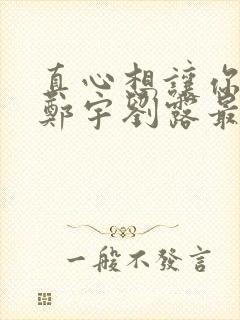 真心想讓你
鄭宇劉露最
一般不發言